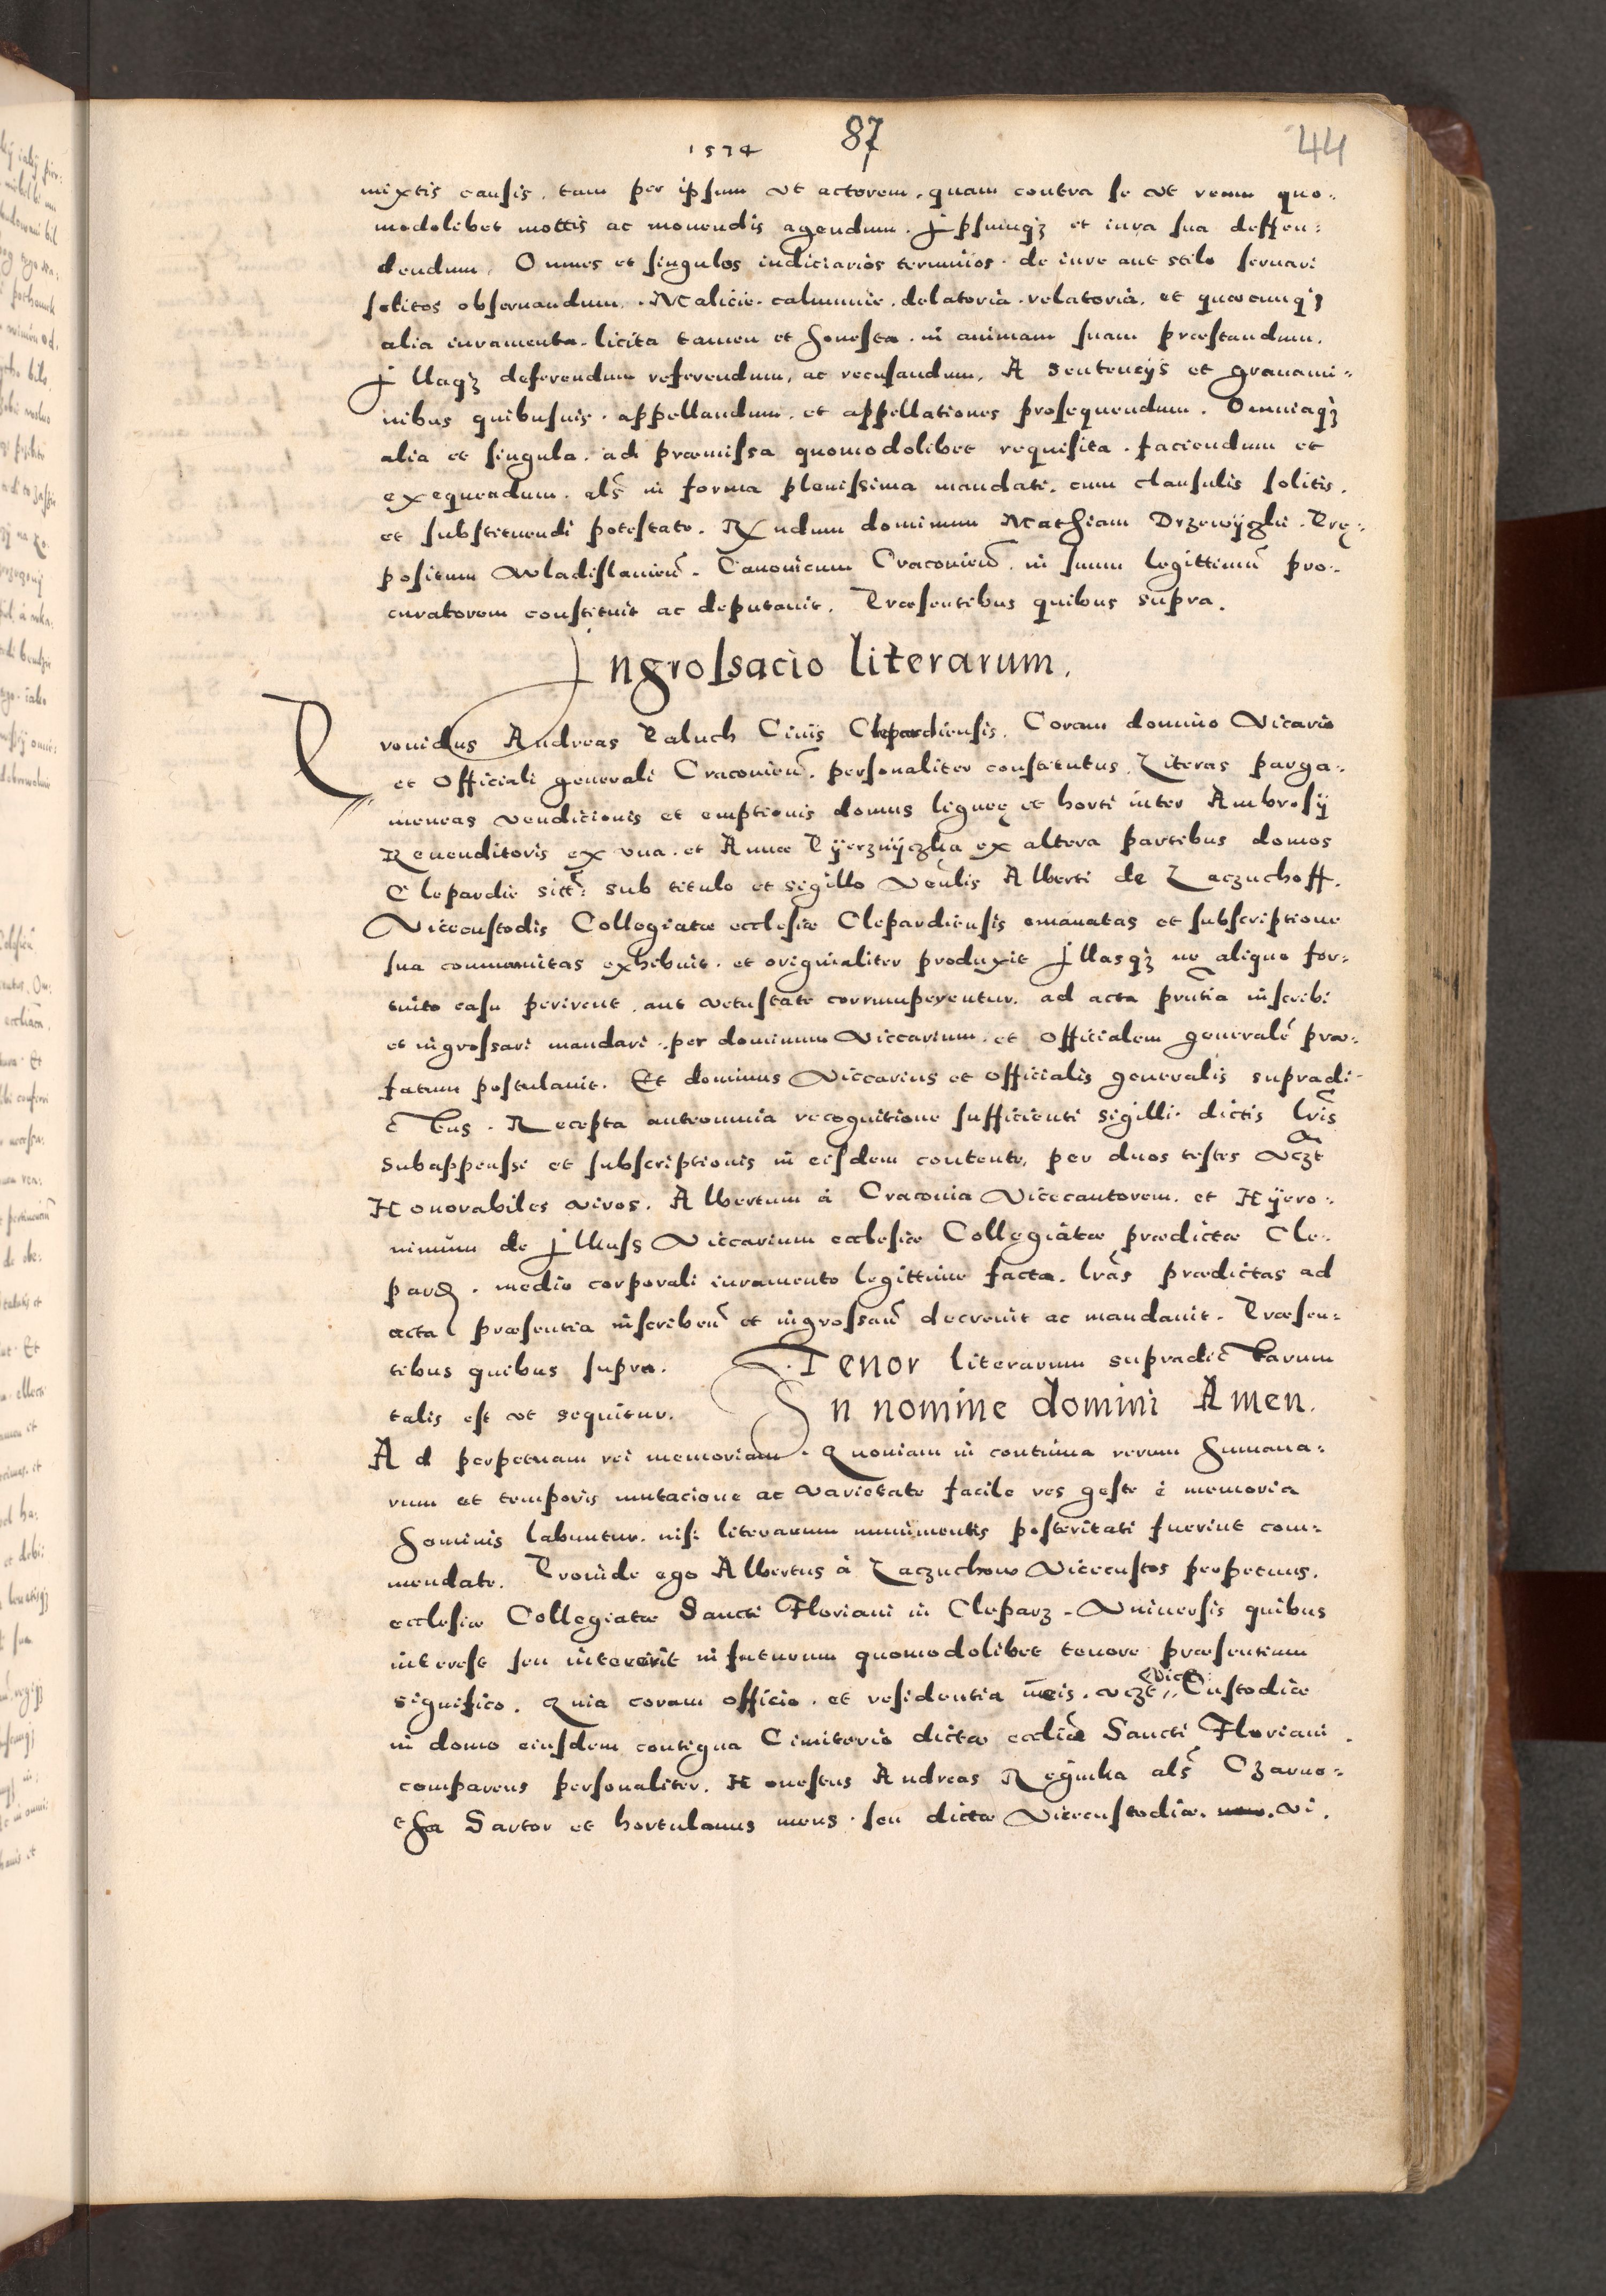 87
1574
44
mixtis causis, tam per ipsum ut actorem, quam contra se ut reum quo-
modolibet mottis ac movendis agendum. Ipsumq3 et iura sua deffen:
dendum. Omnes et singulos iudiciarios terminos de iure aut stilo servari
solitos observandum. Malicie, calumnie, delatoria, relatoria, et quæcunq3
alia iuramenta licita tamen et honesta in animam suam præstandum.
Illaq3 deferendum referendum, ac recusandum, A sentencijs et gravami-
nibus quibusuis appellandum, et appellationes prosequendum. Omniaq3
alia et singula, ad præmissa quomodolibet requisita faciendum et
exequendum, als in forma plenissima mandati, cum clausulis solitis,
et substituendi potestate. Rndum dominum Mathiam Drzewyczki Præ-
positum Wladislauien. Canonicum Cracovien. in suum legittimu pro-
curatorem constituit ac deputauit. Præsentibus quibus supra.
Ingrossacio literarum.
Prouidus Andreas Paluch Ciuis Clepardiensis, Coram domino Vicario
et Officiali generali Cracovien. personaliter constitutus, Literas parga-
meneas vendicionis et emptionis domus ligneę et horti inter Ambrosij
Revenditoris ex una et Annæ Pyerznyczka ex altera partibus domos
Clepardie sitt: sub titulo et sigillo Venlis Alberti de Laczuchoff.
Vicecustodis Collegiatæ ecclesiæ Clepardiensis emanatas et subscriptione
sua communitas exhibuit et originaliter produxit Illasq3 ne aliquo for-
tuito casu perirent, aut vetustate corrumperentur, ad acta pñtia inscribi
et ingrossari mandari per dominum Viccarium et Officialem generale præ-
fatum postulauit. Et dominus Viccarius et Officialis generalis supradi-
ctus. Recepta anteomnia recognitione sufficienti sigilli dictis lris
subappensi et subscriptionis in eisdem contente, per duos testes vczt
Honorabiles viros. Albertum à Cracovia Vicecantorem, et Hyero-
nimum de Ilkuss Viccarium ecclesiæ Collegiatæ prædictæ Cle-
pard. medio corporali iuramento legittime facta. lras prædictas ad
acta præsentia inscriben et ingrossan decreuit ac mandauit. Præsen-
tibus quibus supra. Tenor literarum supradictarum
talis est ut sequitur. In nomine domini Amen.
Ad perpetuam rei memoriam. Quoniam in continua rerum humana-
rum et temporis mutacione ac varietate facile res geste è memoria
hominis labuntur, nisi literarum munimentis posteritati fuerint com-
mendate. Proinde ego Albertus à Laczuchow Vicecustos perpetuus,
ecclesiæ Collegiatæ Sancti Floriani in Cleparz. Vniuersis quibus
interest seu intererit in futurum quomodolibet tenore præsentium
significo. Quia coram officio et residentia meis, vczt Vice Custodiæ
in domo eiusdem contigua Cimiterio dictæ eccliæ Sancti Floriani
comparens personaliter. Honestus Andreas Reginka als Czarno-
cha Sartor et hortulanus meus seu dictæ Vicecustodiæ. vi.